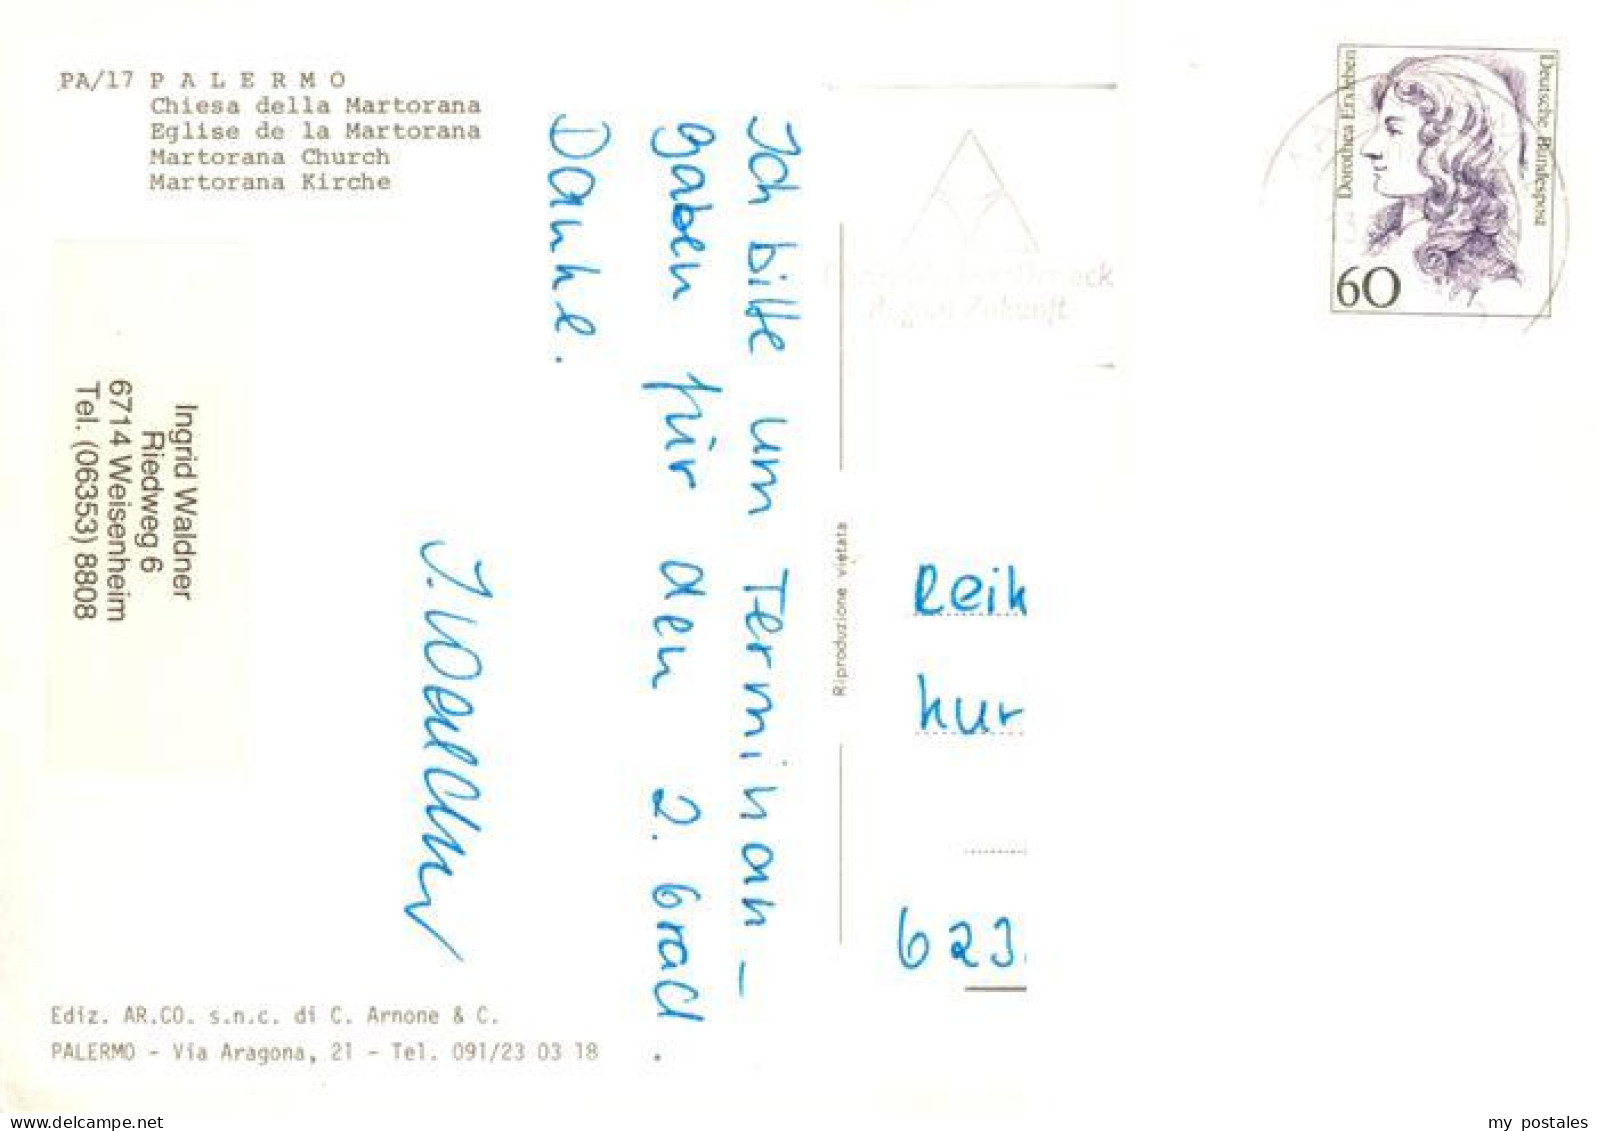 PA/17 P A L E R M O
Chiesa della Martorana
Eglise de la Martorana
Martorana Church
Martorana Kirche
Ingrid Waldner
Riedweg 6
6714 Weisenheim
Tel. (06353) 8808
Ich bitte um Terminan-
gaben für den 2. Grad.
Danke.
I. Waldner
Ediz. AR.CO. s.n.c. di C. Arnone & C.
PALERMO - Via Aragona, 21 - Tel. 091/23 03 18
Riproduzione vietata
Zukunft
Dorothea Erxleben
Deutsche Bundespost
60
Reik
kur
623
delcampe.net
my_postales